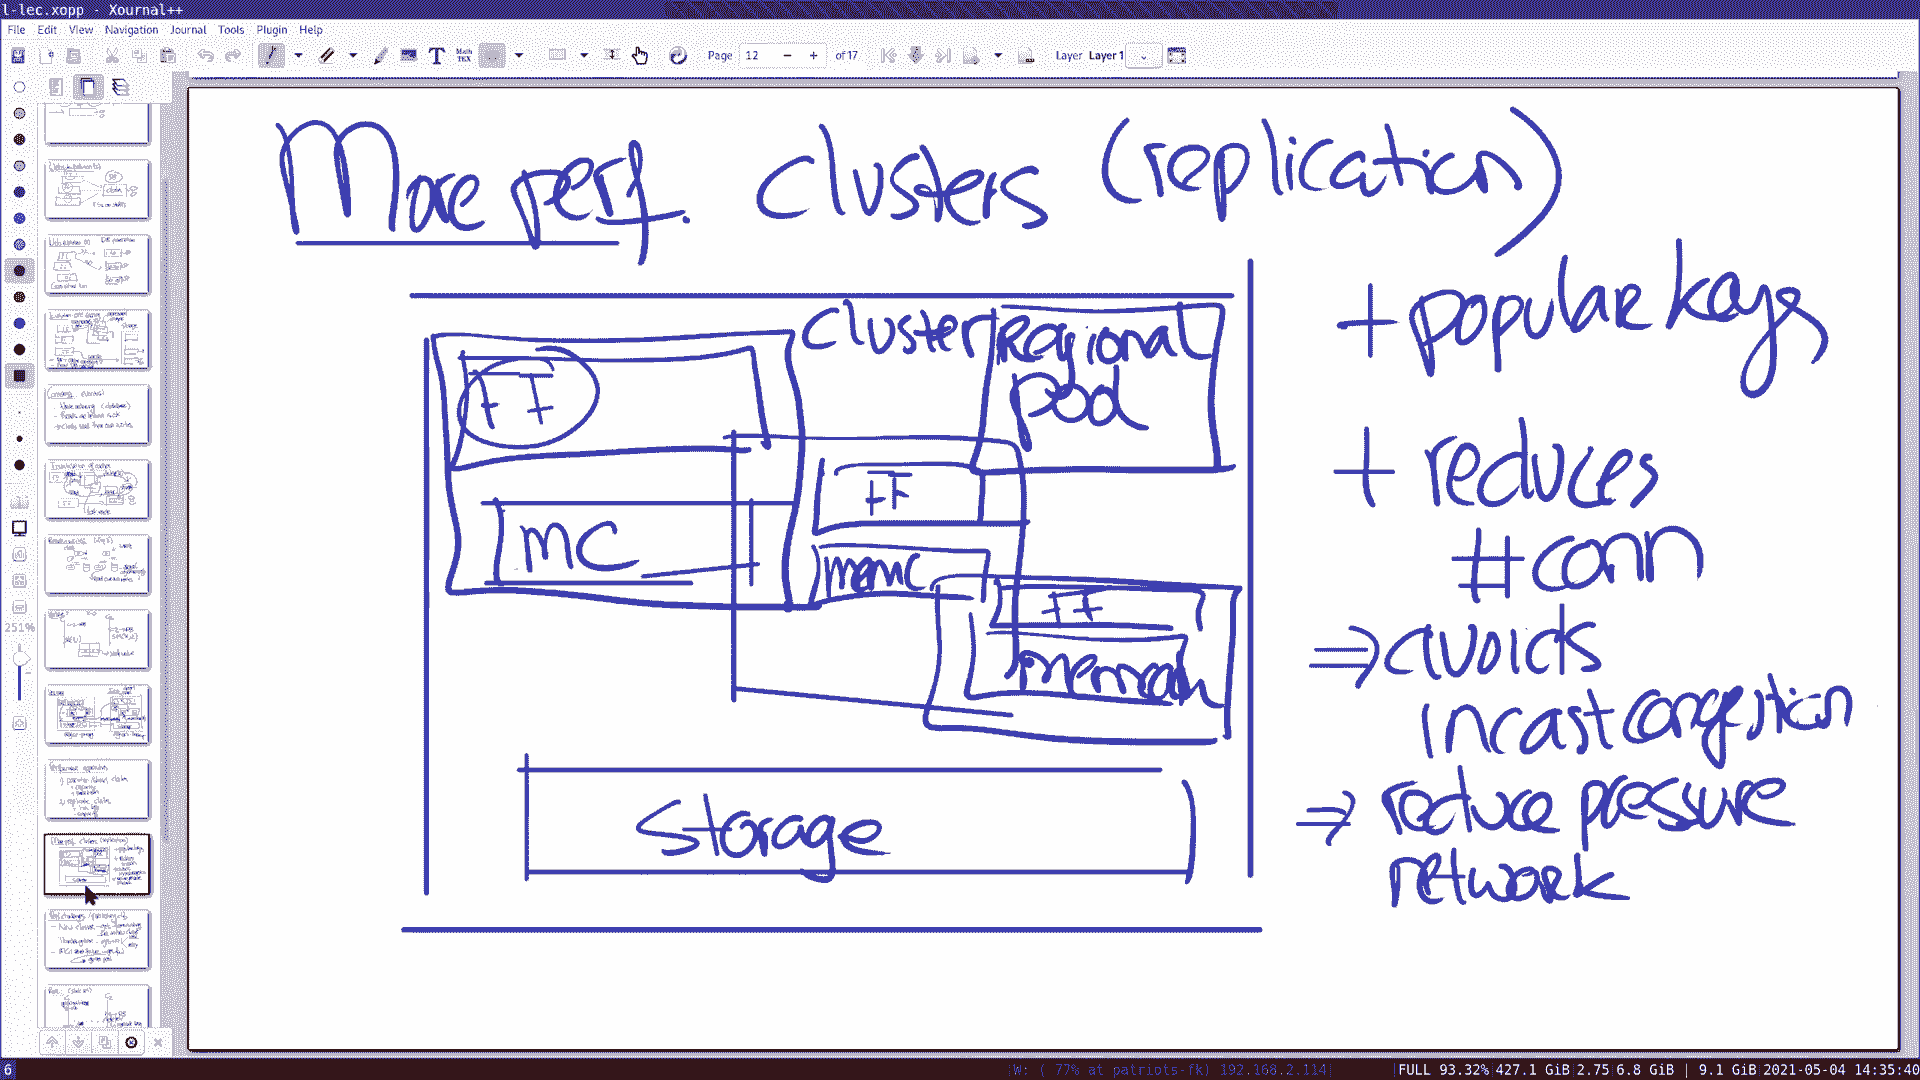 l-lec.xopp - Xournal++
File Edit View Navigation Journal Tools Plugin Help
Page 12 of 17 Layer Layer 1
251%
More perf. clusters (replication)
cluster
Regional
pod
FF
MC
FF
memc
FF
memcach
Storage
+ popular keys
+ reduces
# conn
⇒ avoids
incast congestion
⇒ reduce pressure
network
6
W: ( 77% at patriots-fk) 192.168.2.114| |FULL 93.32%|427.1 GiB|2.75|6.8 GiB | 9.1 GiB|2021-05-04 14:35:40